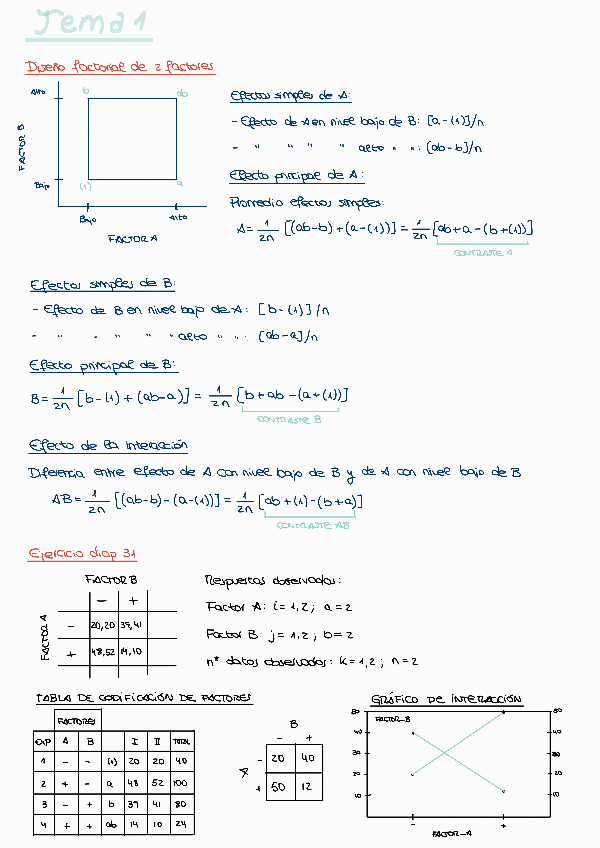 Tema 1
Diseño factorial de 2 factores
Alto
b
ab
FACTOR B
Bajo
(1)
a
Bajo
Alto
FACTOR A
Efectos simples de A:
- Efecto de A en nivel bajo de B: [a-(1)]/n
- " " " " " alto " " : [ab-b]/n
Efecto principal de A:
Promedio efectos simples:
A = 1/2n [(ab-b)+(a-(1))] = 1/2n [ab+a-(b+(1))]
CONTRASTE A
Efectos simples de B:
- Efecto de B en nivel bajo de A: [b-(1)]/n
- " " " " " " alto " " : [ab-a]/n
Efecto principal de B:
B = 1/2n [b-(1)+(ab-a)] = 1/2n [b+ab-(a+(1))]
CONTRASTE B
Efecto de la interacción
Diferencia entre efecto de A con nivel bajo de B y de A con nivel bajo de B
AB = 1/2n [(ab-b)-(a-(1))] = 1/2n [ab+(1)-(b+a)]
CONTRASTE AB
Ejercicio diap 31
FACTOR B
- +
FACTOR A
- 20,20 39,41
+ 48,52 14,10
Respuestas observadas:
Factor A: i=1,2; a=2
Factor B: j=1,2; b=2
nº datos observados: k=1,2; n=2
TABLA DE CODIFICACIÓN DE FACTORES
FACTORES
EXP A B I II TOTAL
1 - - (1) 20 20 40
2 + - a 48 52 100
3 - + b 39 41 80
4 + + ab 14 10 24
B
- +
A
- 20 40
+ 50 12
GRÁFICO DE INTERACCIÓN
FACTOR_B
50 50
40 40
30 30
20 20
10 10
- +
FACTOR_A